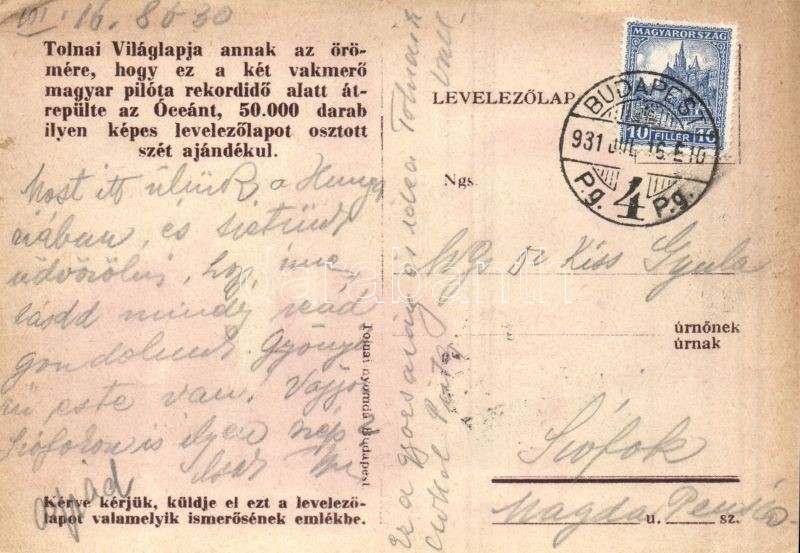 VII. 16. 8ó 30
Tolnai Világlapja annak az örö-
mére, hogy ez a két vakmerő
magyar pilóta rekordidő alatt át-
repülte az Óceánt, 50.000 darab
ilyen képes levelezőlapot osztott
szét ajándékul.
Most itt ülünk a Hungá
riában, és sietünk
üdvözölni, hogy íme,
lásd mindig reád
gondolunk. Gyönyö
rű este van. Vajjon
Siófokon is ilyen szép a
apád
Kérve kérjük, küldje el ezt a levelező-
lapot valamelyik ismerősének emlékbe.
Tolnai nyomda Budapest
Ez a gyorsaság az idea Tolnaié
csókol
LEVELEZŐLAP
MAGYARORSZÁG
10 FILLÉR 10
BUDAPEST
931 JUL 16. E 10
P.g. 4 P.g.
Ngs.
Ng. Dr Kiss Gyula
úrnőnek
úrnak
Siófok
Magda Penzió
u. sz.
darabanth